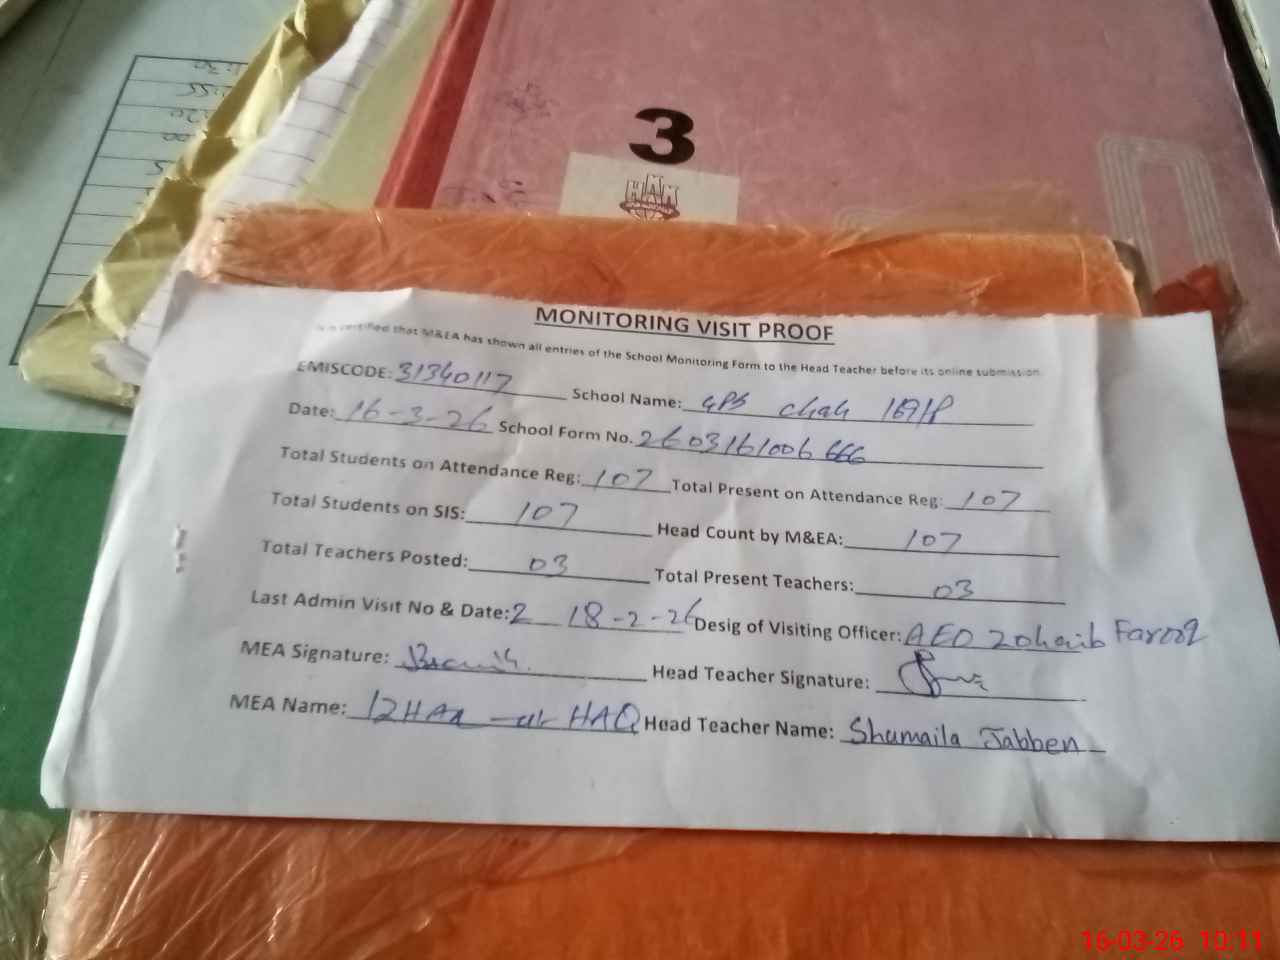 3
HAM
MONITORING VISIT PROOF
It is certified that M&EA has shown all entries of the School Monitoring Form to the Head Teacher before its online submission.
EMISCODE: 31340117 School Name: GPS Chak 169/P
Date: 16-3-26 School Form No. 2603161006666
Total Students on Attendance Reg: 107 Total Present on Attendance Reg: 107
Total Students on SIS: 107 Head Count by M&EA: 107
Total Teachers Posted: 03 Total Present Teachers: 03
Last Admin Visit No & Date: 2 18-2-26 Desig of Visiting Officer: AEO Zohaib Farooq
MEA Signature: Head Teacher Signature:
MEA Name: IZHAR-ul-HAQ Head Teacher Name: Shumaila Jabben
16-03-26 10:11